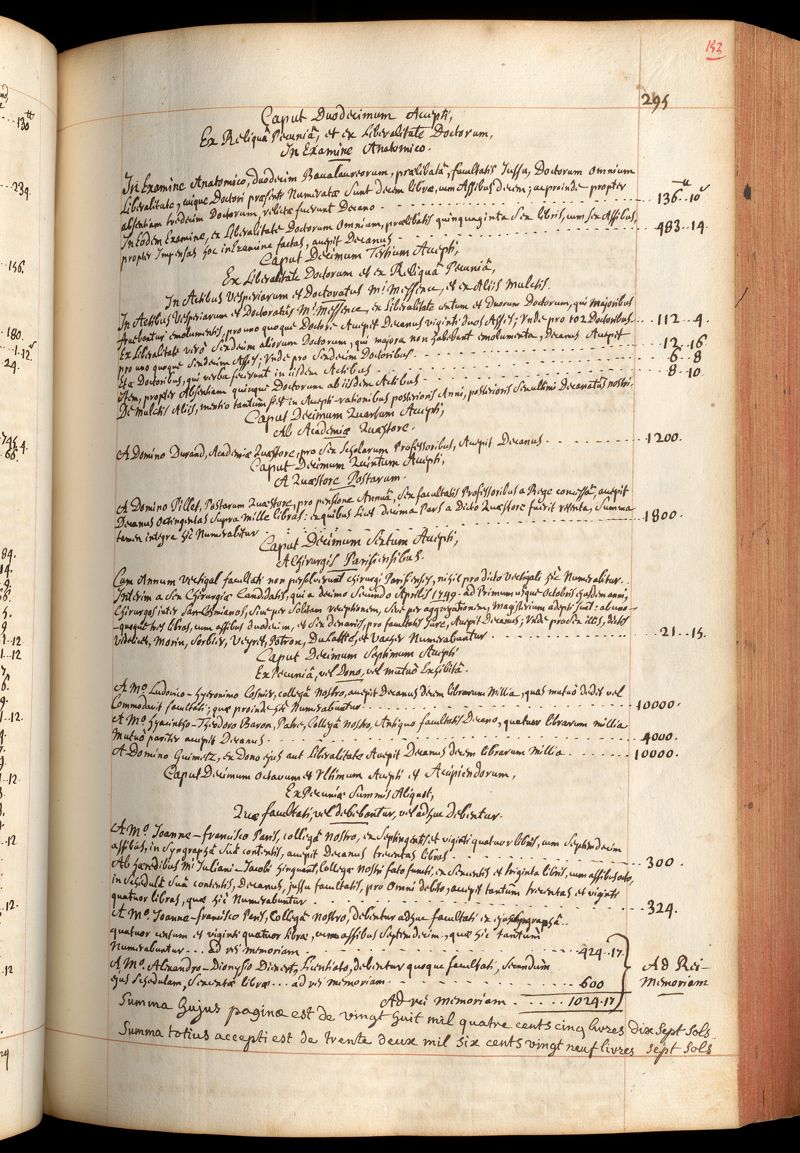 152
295
Caput Duodecimum Accepti,
Ex Reliquâ Pecuniâ, et ex Liberalitate Doctorum,
In Examine Anatomico.
In Examine Anatomico, duodecim Baccalaureorum, prælibatâ, facultatis Jussu, Doctorum omnium
Liberalitate, cuique Doctori præsenti Numeratæ Sunt decem libræ, cum Assibus decem; ac proinde propter
absentiam tredecim Doctorum, relictæ fuerunt Decano 136 ₶ 10 s
In Eodem Examine, ex Liberalitate Doctorum Omnium, prælibatis quinquaginta Sex libris, cum sex Assibus,
propter Impensas hoc in Examine factas, accepit Decanus 483 .. 14.
Caput Decimum Tertium Accepti,
Ex Liberalitate Doctorum et ex Reliquâ Pecuniâ,
In Actibus Vesperiarum et Doctoratûs Mi. Messence, et ex Aliis Mulctis.
In Actibus Vesperiarum et Doctoratûs Mi. Messence, ex Liberalitate centum et Duorum Doctorum, qui majoribus
fruebantur emolumentis, pro uno quoque Doctore Accepit Decanus viginti duos Asses; Unde pro 102 Doctoribus 112 .. 4.
Ex Liberalitate verò Sexdecim aliorum Doctorum, qui majora non habebant emolumenta, Decanus Accepit
pro uno quoque Sexdecim Asses; Unde pro Sexdecim Doctoribus 12 .. 16
Ex Doctoribus, qui verba fecerunt in iisdem Actibus 6 .. 8
Item, propter Absentiam quinque Doctorum ab iisdem Actibus 8 .. 10
De Mulctis Aliis, mentio tantum fiet in Accepti-rationibus posterioris Anni, posterioris Decanatûs nostri.
Caput Decimum Quartum Accepti,
Ab Academiæ Quæstore.
A Domino Durand, Academiæ Quæstore, pro Sex Scholarum Professoribus, Accepit Decanus 1200.
Caput Decimum Quintum Accepti,
A Quæstore Postarum.
A Domino Pillet, Postarum Quæstore, pro pensione Annuâ, Sex facultatis Professoribus a Rege concessâ, accepit
Decanus octingentas Supra mille libras: ex quibus licet decima Pars a Dicto Quæstore fuerit retenta, Summa
tamen integra hîc Numerabitur 1800.
Caput Decimum Sextum Accepti,
A Chirurgis Parisiensibus.
Cum Annuum Vectigal facultati non persolverunt chirurgi Parisienses, nihil pro dicto Vectigali hîc Numerabitur.
Interim a Sex Chirurgiæ Candidatis, qui a decimo Secundo Aprilis 1749. ad Primum usque Octobris ejusdem anni,
Chirurgos inter San-Cosmianos, Sive per Solitam receptionem, Sive per aggregationem, Magisterium adepti Sunt: ab uno-
-quoque tres libras, cum assibus duodecim, et Sex denariis, pro facultatis Jure, Accepit Decanus; Unde pro Sex illis, dictis
videlicet, Morin, Sorbier, Veyret, Potron, et Vacher Numerabuntur 21 .. 15.
Caput Decimum Septimum Accepti
Ex Pecuniâ, vel Dono, vel mutuò Exhibitâ.
A Mo. Ludovico-Hyeronimo Cosnier, collegâ Nostro, accepit Decanus decem librarum Millia, quas mutuò dedit vel
Commodavit facultati; quæ proinde hîc Numerabuntur 10000.
A Mo. Hyacintho-Theodoro Baron, Patre, Collegâ Nostro, Antiquo facultatis Decano, quatuor librarum millia
Mutuò pariter accepit Decanus 4000.
A Domino Guimetz, ex Dono ejus aut Liberalitate Accepit Decanus decem librarum millia 10000.
Caput Decimum Octavum et Ultimum Accepti et Accipiendorum,
Ex Pecuniæ Summis Aliquot,
Quæ facultati, vel debebantur, vel adhuc Debentur.
A Mo. Joanne-francisco Paris, collegâ nostro, ex Septingentis, et viginti quatuor libris, cum Septemdecim
assibus, in Syngraphâ Suâ contentis, accepit Decanus trecentas libras 300.
Ab hæredibus Mi Juliani-Jacobi hingant, Collegæ Nostri fato functi, ex Sexcentis et triginta libris, cum assibus octo,
in Schedulâ Suâ contentis, Decanus, jussu facultatis, pro Omni debito, accepit tantùm trecentas et viginti
quatuor libras, quæ hîc Numerabuntur 324.
A Mo. Joanne-francisco Paris, Collegâ Nostro, debentur adhuc facultati ex ejus syngraphâ
quatuor centum et viginti quatuor libræ, cum assibus Septemdecim, quæ hîc tantùm
Numerabuntur... ad rei memoriam 424 .. 17.
A Mo. Alexandro-Dionysio Dienert, Licentiato, debentur quoque facultati, Secundùm
ejus Schedulam, Sexcentæ libræ... ad rei memoriam 600
Ad Rei-
Memoriam
Ad rei memoriam 1024 .. 17
Summa hujus paginæ est de vingt huit mil quatre cents cinq livres dix sept sols
Summa totius accepti est de trente deux mil six cents vingt neuf livres sept sols